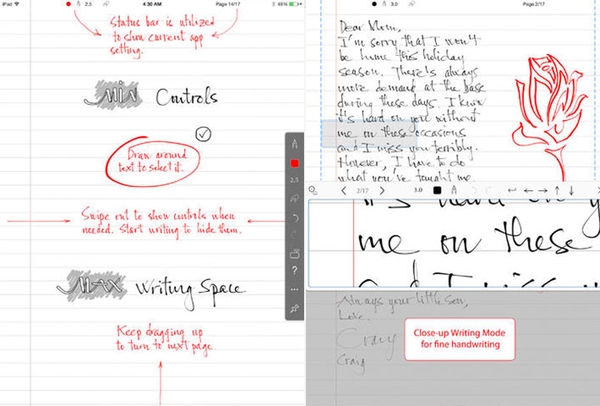 iPad
2.5
4:30 AM
Page 14/17
48%
Status bar is utilized
to show current app
setting.
Min Controls
Draw around
text to select it.
Swipe out to show controls when
needed. Start writing to hide them.
MAX Writing Space
Keep dragging up
to turn to next page
2.5
?
3.0
Page 2/17
Dear Mom,
I'm sorry that I won't
be home this holiday
season. There's always
more demand at the base
during these days. I know
it's hard on you without
me on these occasions
and I miss you terribly.
However, I have to do
what you've taught me
2/17
3.0
me on these
Always your little son,
Love.
Craig
Craig
Close-up Writing Mode
for fine handwriting